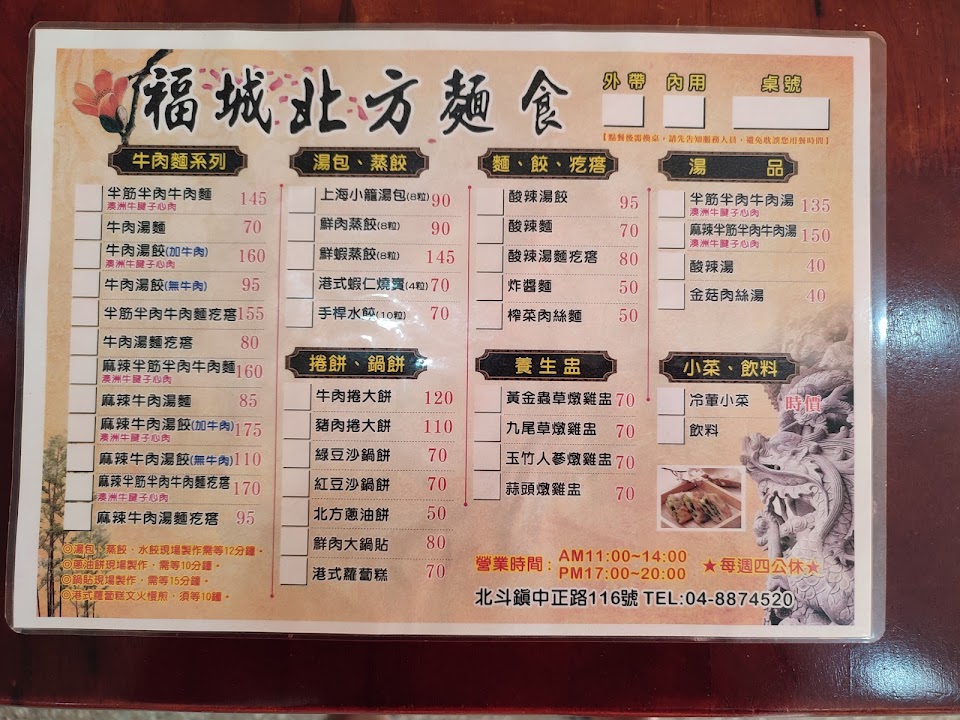 福城北方麵食
外帶 內用 桌號
【點餐後需換桌，請先告知服務人員，避免耽誤您用餐時間】
牛肉麵系列
半筋半肉牛肉麵 145
澳洲牛腱子心肉
牛肉湯麵 70
牛肉湯餃(加牛肉) 160
澳洲牛腱子心肉
牛肉湯餃(無牛肉) 95
半筋半肉牛肉麵疙瘩 155
牛肉湯麵疙瘩 80
麻辣半筋半肉牛肉麵 160
澳洲牛腱子心肉
麻辣牛肉湯麵 85
麻辣牛肉湯餃(加牛肉) 175
澳洲牛腱子心肉
麻辣牛肉湯餃(無牛肉) 110
麻辣半筋半肉牛肉麵疙瘩 170
澳洲牛腱子心肉
麻辣牛肉湯麵疙瘩 95
◎湯包、蒸餃、水餃現場製作需等12分鐘。
◎蔥油餅現場製作，需等10分鐘。
◎鍋貼現場製作，需等15分鐘。
◎港式蘿蔔糕文火慢煎，須等10鐘。
湯包、蒸餃
上海小籠湯包(8粒) 90
鮮肉蒸餃(8粒) 90
鮮蝦蒸餃(8粒) 145
港式蝦仁燒賣(4粒) 70
手桿水餃(10粒) 70
捲餅、鍋餅
牛肉捲大餅 120
豬肉捲大餅 110
綠豆沙鍋餅 70
紅豆沙鍋餅 70
北方蔥油餅 50
鮮肉大鍋貼 80
港式蘿蔔糕 70
麵、餃、疙瘩
酸辣湯餃 95
酸辣麵 70
酸辣湯麵疙瘩 80
炸醬麵 50
榨菜肉絲麵 50
養生盅
黃金蟲草燉雞盅 70
九尾草燉雞盅 70
玉竹人蔘燉雞盅 70
蒜頭燉雞盅 70
湯品
半筋半肉牛肉湯 135
澳洲牛腱子心肉
麻辣半筋半肉牛肉湯 150
澳洲牛腱子心肉
酸辣湯 40
金菇肉絲湯 40
小菜、飲料
冷葷小菜 時價
飲料
營業時間：AM11:00~14:00
PM17:00~20:00
★每週四公休★
北斗鎮中正路116號 TEL:04-8874520